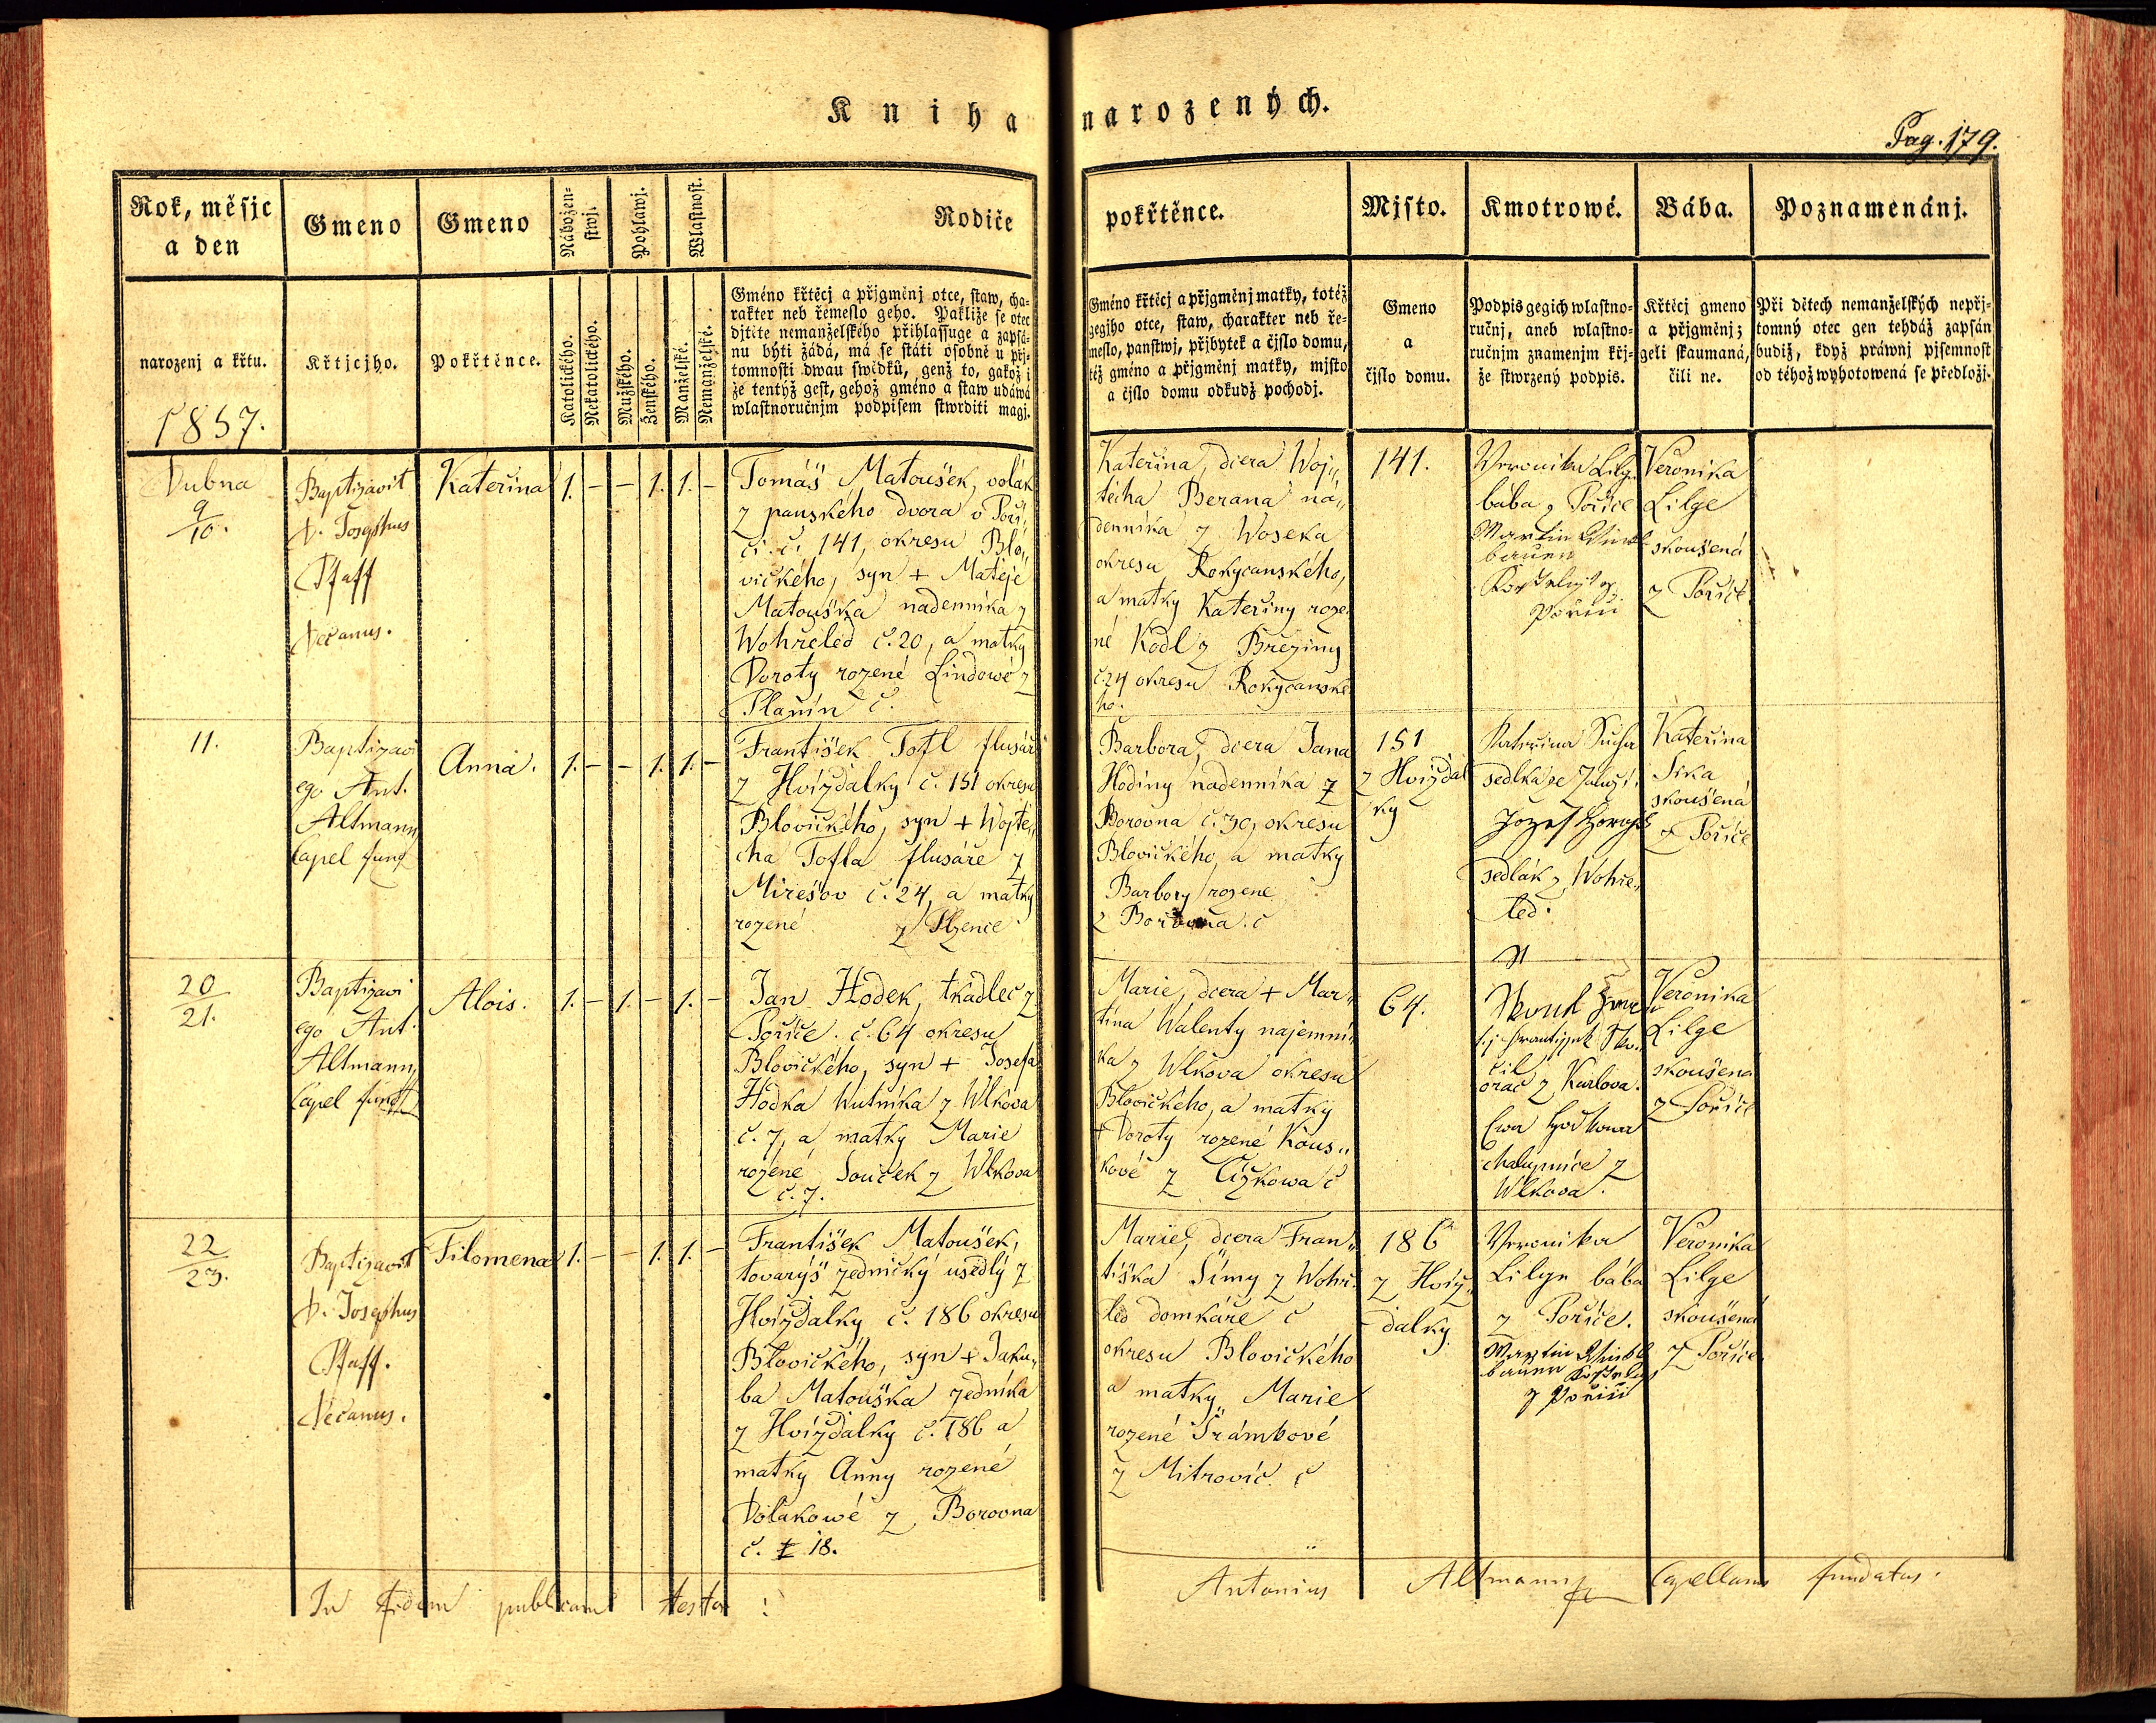 Kniha narozených.
Pag. 179.
Rok, měsjc
a den
narozenj a křtu.
1857.
Gmeno
Křtjcjho.
Gmeno
Pokřtěnce.
Nábožen-
stwj.
Katolického.
Nekatolického.
Pohlawj.
Mužského.
Ženského.
Wlastnost.
Manželské.
Nemanželské.
Rodiče
Gméno křtěcj a přjgměnj otce, staw, cha-
rakter neb řemeslo geho. Pakliže se otec
djtěte nemanželského přihlassuge a zapsá-
nu býti žádá, má se státi osobně u přj-
tomnosti dwau swědků, genž to, gakož i
že tentýž gest, gehož gméno a staw udáwá
wlastnoručnjm podpisem stwrditi magj.
pokřtěnce.
Gméno křtěcj a přjgměnj matky, totéž
gegjho otce, staw, charakter neb ře-
meslo, panstwj, přjbytek a čjslo domu,
též gméno a přjgměnj matky, mjsto
a čjslo domu odkudž pochodj.
Mjsto.
Gmeno
a
čjslo domu.
Kmotrowé.
Podpis gegich wlastno-
ručnj, aneb wlastno-
ručnjm znamenjm křj-
že stwrzený podpis.
Bába.
Křtěcj gmeno
a přjgměnj;
geli skaumaná,
čili ne.
Poznamenánj.
Při dětech nemanželských nepřj-
tomný otec gen tehdáž zapsán
budiž, když práwnj pjsemnost
od téhož wyhotowená se předložj.
Dubna
9
10.
Baptizavit
P. Josephus
Pfaff
Decanus.
Kateřina
1. – – 1. 1. –
Tomáš Matoušek, volák
z panského dvora v Poři„
čí č. 141, okresu Blo„
vického, syn + Matěje
Matouška nadenníka z
Wohřeled č. 20, a matky
Doroty rozené Lindowé z
Planin č.
Kateřina, dcera Woj„
těcha Berana ná„
denníka z Woseka
okresu Rokycanského,
a matky Kateřiny roze„
né Kodl z Březiny
č. 24 okresu Rokycanské
ho.
141.
Veronika Lilge
bába z Pořiče
Martin
bauer
z
Pořiči
Veronika
Lilge
skoušená
z Pořiče
11.
Baptizavi
ego Ant.
Altmann
Capel fund
Anna.
1. – – 1. 1. –
František Tofl flusář
z Hvizdalky č. 151 okresu
Blovického, syn + Wojtě„
cha Tofla flusáře z
Mirešov č. 24, a matky
rozené z Plzence
Barbora, dcera Jana
Hodiny nadenníka z
Borovna č. 30, okresu
Blovického, a matky
Barbory rozene
z Borovna. č
151
z Hvizdal
ky
Kateřina Sucha
sedlka ze
Jozef
sedlák z Wohře„
led.
Kateřina
Sika
skoušená
z Pořiče
20
21.
Baptizavi
ego Ant.
Altmann
Capel fund
Alois.
1. – 1. – 1. –
Jan Hodek, tkadlec z
Pořiče. č. 64 okresu
Blovického, syn + Josefa
Hodka Hutníka z Wlkova
č. 7, a matky Marie
rozené Souček z Wlkova
č. 7.
Marie, dcera + Mar„
tina Walenty najemní„
ka z Wlkova okresu
Blovického, a matky
+ Doroty rozené Kous„
kové z Čižkowa č
64.
oráč z Karlova.
Ewa Hodkowa
chalupnice z
Wlkova.
Veronika
Lilge
skoušená
z Pořiče
22
23.
Baptizavit
P. Josephus
Pfaff.
Decanus.
Filomena
1. – – 1. 1. –
František Matoušek,
tovaryš zednický usedlý z
Hvizdalky č. 186 okresu
Blovického, syn + Jaku„
ba Matouška zedníka
z Hvizdalky č. 186 a
matky Anny rozené
Wolákowé z Borovna
č. 18.
Marie, dcera Fran„
tiška Šimy z Wohře
led domkáře č
okresu Blovického
a matky Marie
rozené Trámbové
z Mitrovic č
186
z Hviz„
dalky.
Veronika
Lilge bába
z Pořiče.
Martin
bauer
z Pořiči
Veronika
Lilge
skoušená
z Pořiče
In fidem publicam testor:
Antonius Altmann Capellanus fundatus.